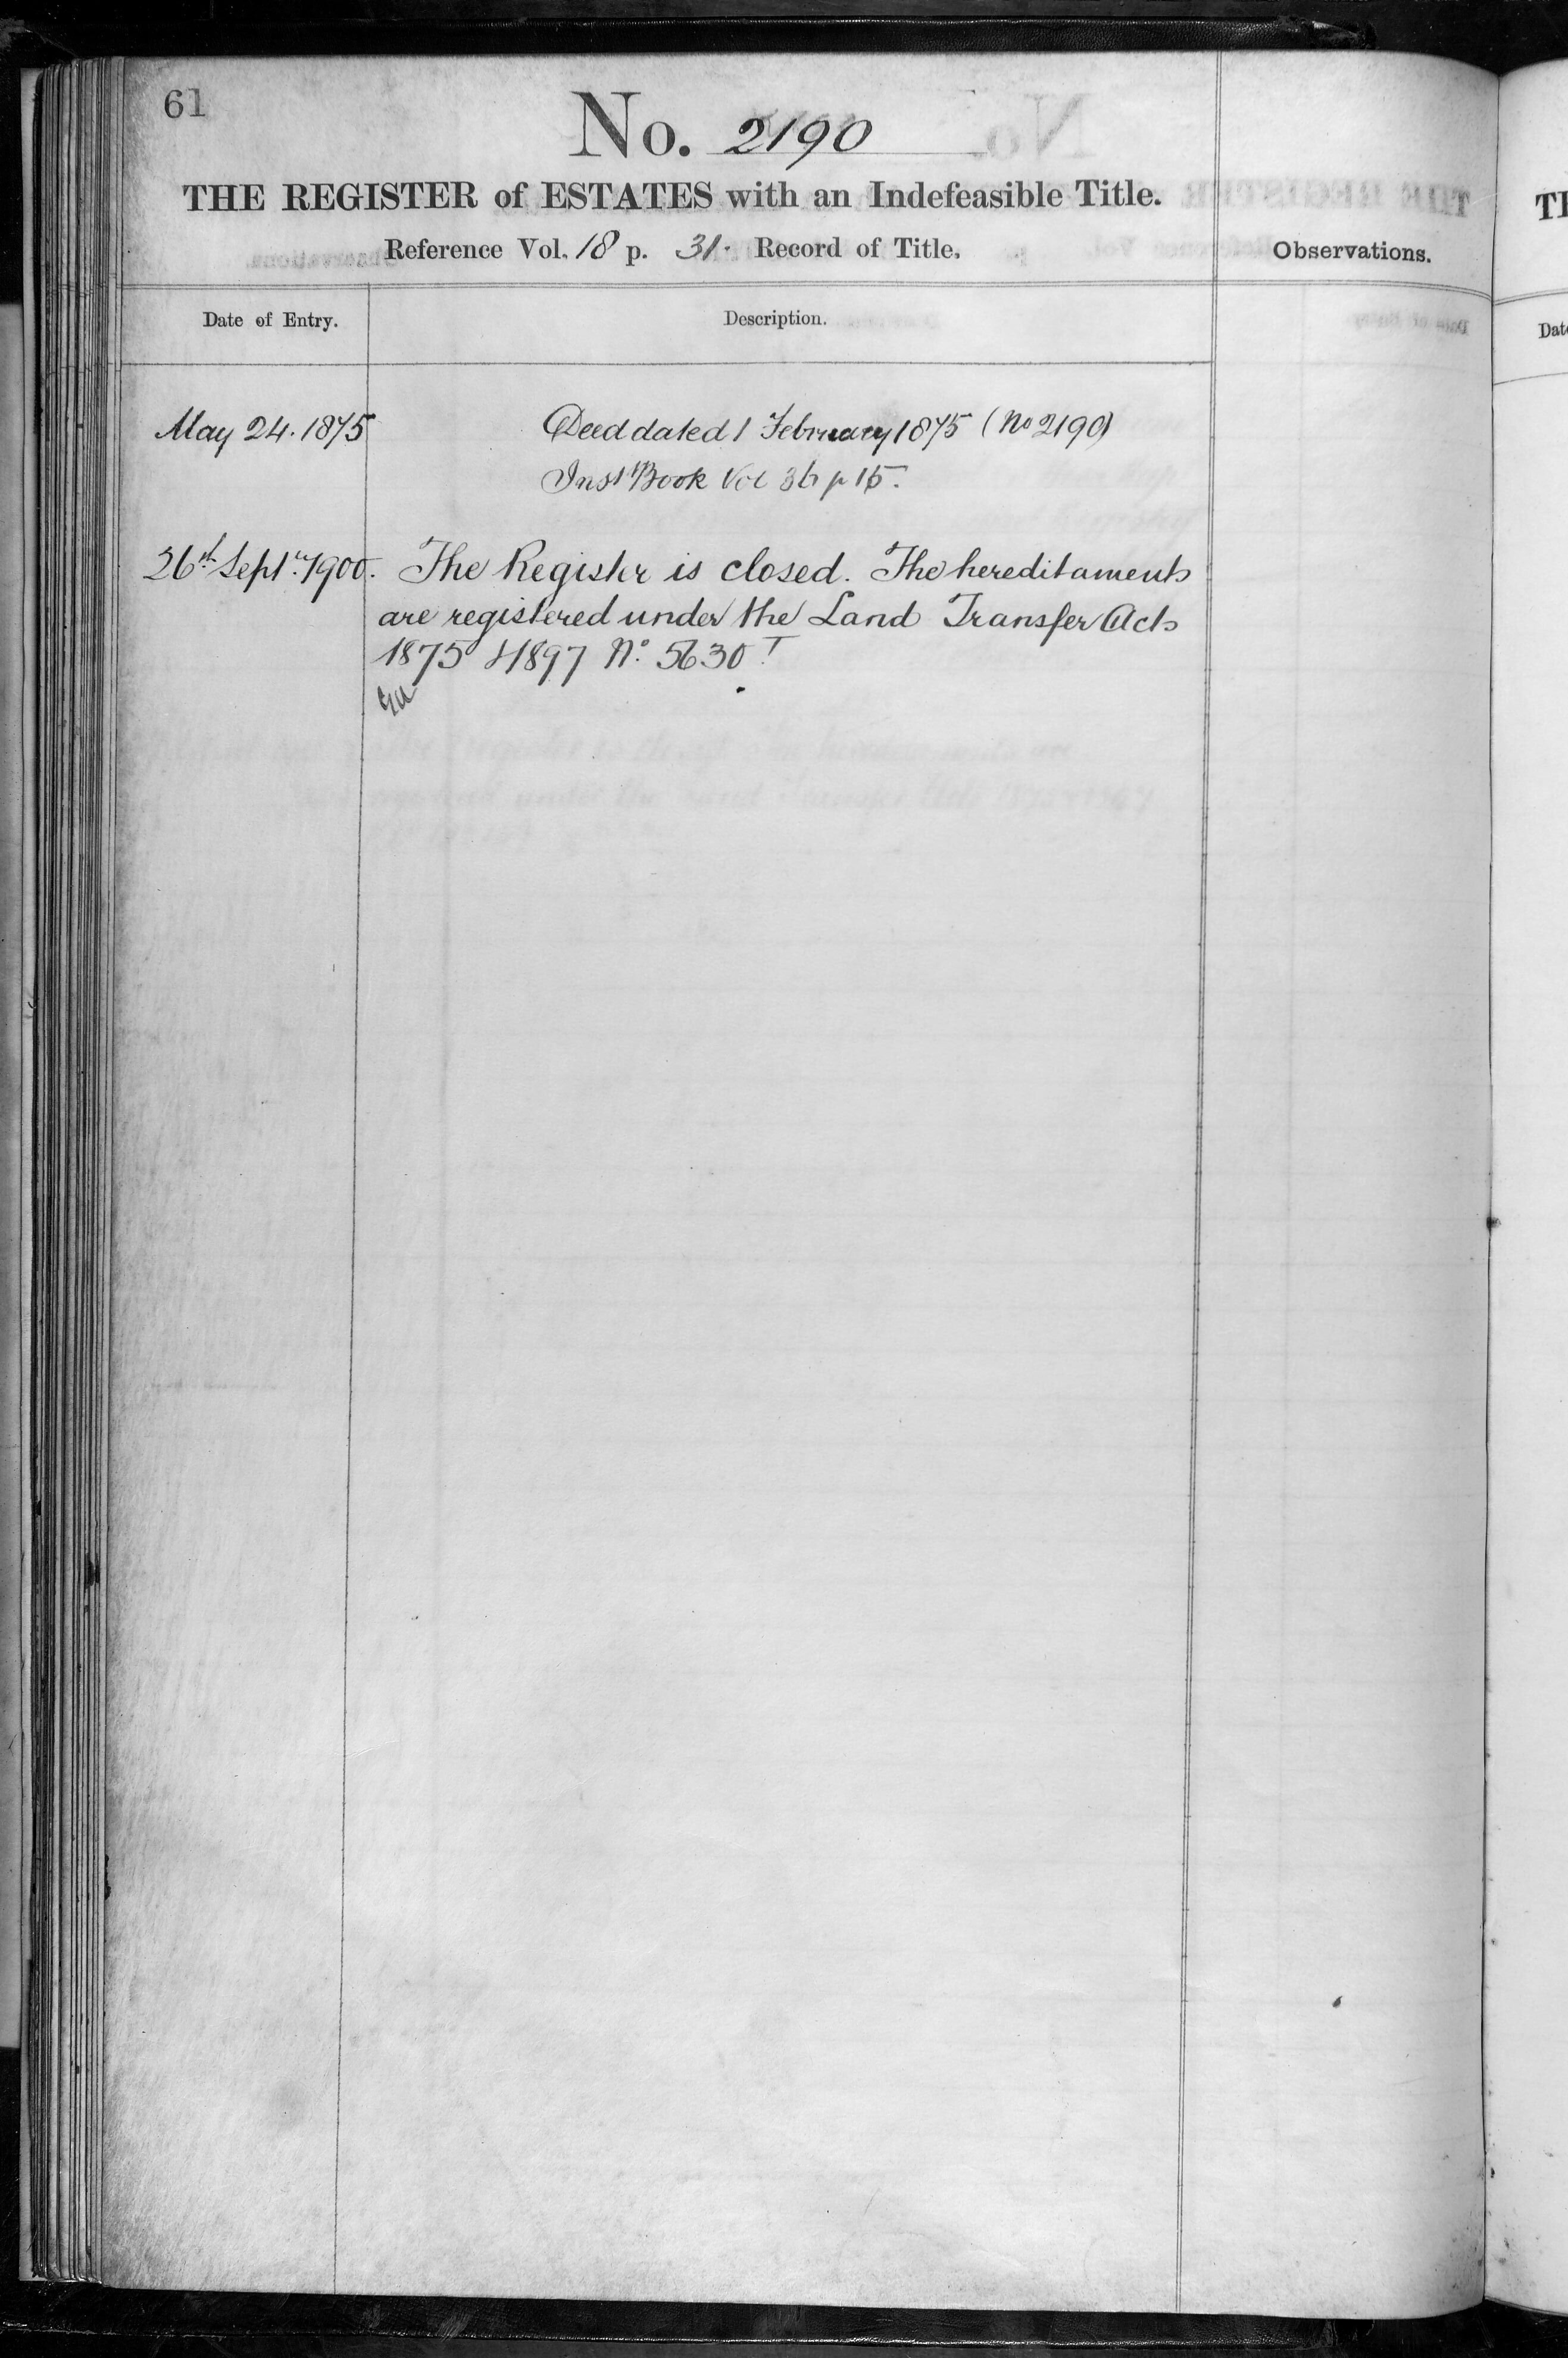 61
No. 2190
THE REGISTER of ESTATES with an Indefeasible Title.
Reference Vol. 18 p. 31. Record of Title.
Observations.
Date of Entry.
Description.
May 24. 1875
Deed dated 1 February 1875 (No 2190)
Inst Book Vol 36 p 15.
26th Septr. 1900.
The Register is closed. The hereditaments
are registered under the Land Transfer Acts
1875 & 1897 No. 5630